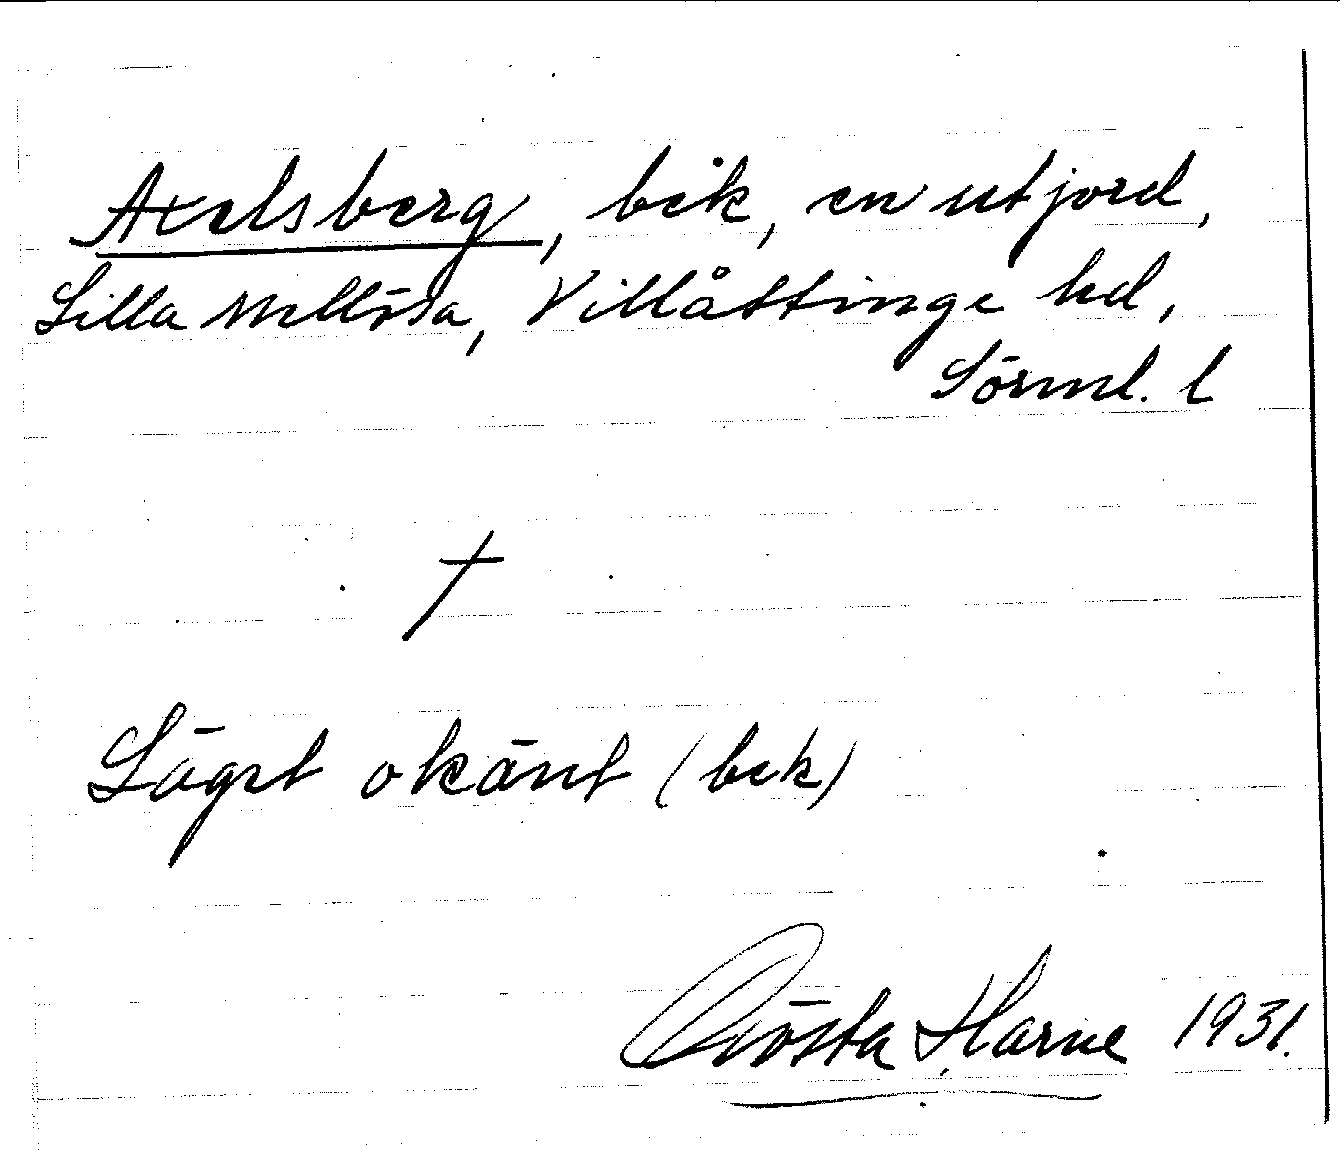 Axelsberg, bek, en utjord,
Lilla Mellösa, Villåttinge hd,
Sörml. l
†
Läget okänt (bek)
Gösta Harne 1931.